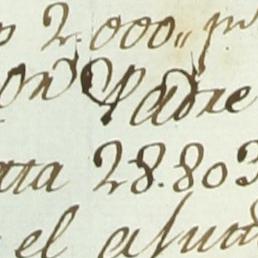 2.000,, p
on Padre
ata 28.803
el asunt